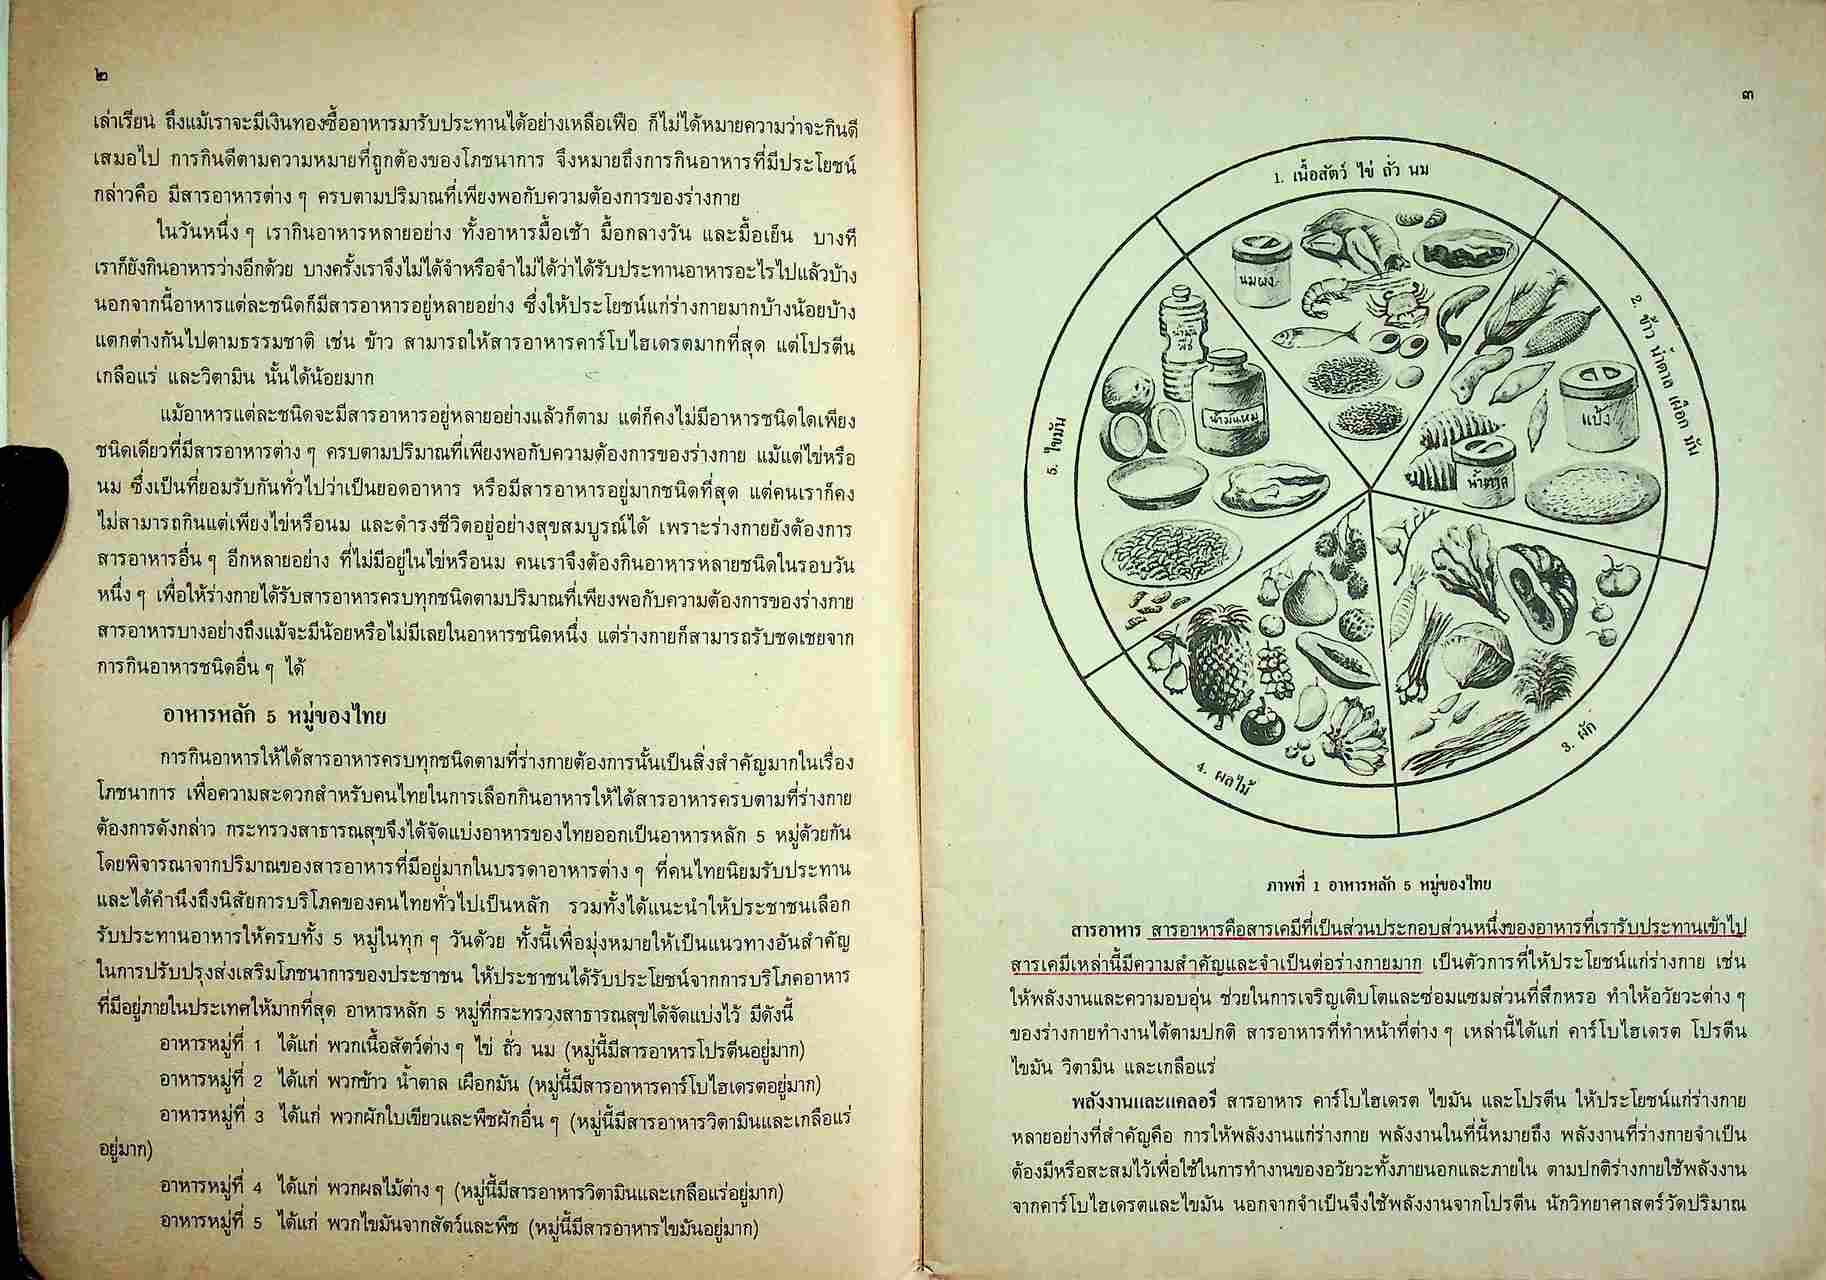 ๒
เล่าเรียน ถึงแม้เราจะมีเงินทองซื้ออาหารมารับประทานได้อย่างเหลือเฟือ ก็ไม่ได้หมายความว่าจะกินดี
เสมอไป การกินดีตามความหมายที่ถูกต้องของโภชนาการ จึงหมายถึงการกินอาหารที่มีประโยชน์
กล่าวคือ มีสารอาหารต่าง ๆ ครบตามปริมาณที่เพียงพอกับความต้องการของร่างกาย
ในวันหนึ่ง ๆ เรากินอาหารหลายอย่าง ทั้งอาหารมื้อเช้า มื้อกลางวัน และมื้อเย็น บางที
เราก็ยังกินอาหารว่างอีกด้วย บางครั้งเราจึงไม่ได้จำหรือจำไม่ได้ว่าได้รับประทานอาหารอะไรไปแล้วบ้าง
นอกจากนี้อาหารแต่ละชนิดก็มีสารอาหารอยู่หลายอย่าง ซึ่งให้ประโยชน์แก่ร่างกายมากบ้างน้อยบ้าง
แตกต่างกันไปตามธรรมชาติ เช่น ข้าว สามารถให้สารอาหารคาร์โบไฮเดรตมากที่สุด แต่โปรตีน
เกลือแร่ และวิตามิน นั้นได้น้อยมาก
แม้อาหารแต่ละชนิดจะมีสารอาหารอยู่หลายอย่างแล้วก็ตาม แต่ก็คงไม่มีอาหารชนิดใดเพียง
ชนิดเดียวที่มีสารอาหารต่าง ๆ ครบตามปริมาณที่เพียงพอกับความต้องการของร่างกาย แม้แต่ไข่หรือ
นม ซึ่งเป็นที่ยอมรับกันทั่วไปว่าเป็นยอดอาหาร หรือมีสารอาหารอยู่มากชนิดที่สุด แต่คนเราก็คง
ไม่สามารถกินแต่เพียงไข่หรือนม และดำรงชีวิตอยู่อย่างสุขสมบูรณ์ได้ เพราะร่างกายยังต้องการ
สารอาหารอื่น ๆ อีกหลายอย่าง ที่ไม่มีอยู่ในไข่หรือนม คนเราจึงต้องกินอาหารหลายชนิดในรอบวัน
หนึ่ง ๆ เพื่อให้ร่างกายได้รับสารอาหารครบทุกชนิดตามปริมาณที่เพียงพอกับความต้องการของร่างกาย
สารอาหารบางอย่างถึงแม้จะมีน้อยหรือไม่มีเลยในอาหารชนิดหนึ่ง แต่ร่างกายก็สามารถรับชดเชยจาก
การกินอาหารชนิดอื่น ๆ ได้
อาหารหลัก 5 หมู่ของไทย
การกินอาหารให้ได้สารอาหารครบทุกชนิดตามที่ร่างกายต้องการนั้นเป็นสิ่งสำคัญมากในเรื่อง
โภชนาการ เพื่อความสะดวกสำหรับคนไทยในการเลือกกินอาหารให้ได้สารอาหารครบตามที่ร่างกาย
ต้องการดังกล่าว กระทรวงสาธารณสุขจึงได้จัดแบ่งอาหารของไทยออกเป็นอาหารหลัก 5 หมู่ด้วยกัน
โดยพิจารณาจากปริมาณของสารอาหารที่มีอยู่มากในบรรดาอาหารต่าง ๆ ที่คนไทยนิยมรับประทาน
และได้คำนึงถึงนิสัยการบริโภคของคนไทยทั่วไปเป็นหลัก รวมทั้งได้แนะนำให้ประชาชนเลือก
รับประทานอาหารให้ครบทั้ง 5 หมู่ในทุก ๆ วันด้วย ทั้งนี้เพื่อมุ่งหมายให้เป็นแนวทางอันสำคัญ
ในการปรับปรุงส่งเสริมโภชนาการของประชาชน ให้ประชาชนได้รับประโยชน์จากการบริโภคอาหาร
ที่มีอยู่ภายในประเทศให้มากที่สุด อาหารหลัก 5 หมู่ที่กระทรวงสาธารณสุขได้จัดแบ่งไว้ มีดังนี้
อาหารหมู่ที่ 1 ได้แก่ พวกเนื้อสัตว์ต่าง ๆ ไข่ ถั่ว นม (หมู่นี้มีสารอาหารโปรตีนอยู่มาก)
อาหารหมู่ที่ 2 ได้แก่ พวกข้าว น้ำตาล เผือกมัน (หมู่นี้มีสารอาหารคาร์โบไฮเดรตอยู่มาก)
อาหารหมู่ที่ 3 ได้แก่ พวกผักใบเขียวและพืชผักอื่น ๆ (หมู่นี้มีสารอาหารวิตามินและเกลือแร่
อยู่มาก)
อาหารหมู่ที่ 4 ได้แก่ พวกผลไม้ต่าง ๆ (หมู่นี้มีสารอาหารวิตามินและเกลือแร่อยู่มาก)
อาหารหมู่ที่ 5 ได้แก่ พวกไขมันจากสัตว์และพืช (หมู่นี้มีสารอาหารไขมันอยู่มาก)
๓
1. เนื้อสัตว์ ไข่ ถั่ว นม
นมผง
2. ข้าว น้ำตาล เผือก มัน
แป้ง
น้ำตาล
3. ผัก
4. ผลไม้
5. ไขมัน
น้ำมัน
พืช
น้ำมันหมู
ภาพที่ 1 อาหารหลัก 5 หมู่ของไทย
สารอาหาร สารอาหารคือสารเคมีที่เป็นส่วนประกอบส่วนหนึ่งของอาหารที่เรารับประทานเข้าไป
สารเคมีเหล่านี้มีความสำคัญและจำเป็นต่อร่างกายมาก เป็นตัวการที่ให้ประโยชน์แก่ร่างกาย เช่น
ให้พลังงานและความอบอุ่น ช่วยในการเจริญเติบโตและซ่อมแซมส่วนที่สึกหรอ ทำให้อวัยวะต่าง ๆ
ของร่างกายทำงานได้ตามปกติ สารอาหารที่ทำหน้าที่ต่าง ๆ เหล่านี้ได้แก่ คาร์โบไฮเดรต โปรตีน
ไขมัน วิตามิน และเกลือแร่
พลังงานและแคลอรี สารอาหาร คาร์โบไฮเดรต ไขมัน และโปรตีน ให้ประโยชน์แก่ร่างกาย
หลายอย่างที่สำคัญคือ การให้พลังงานแก่ร่างกาย พลังงานในที่นี้หมายถึง พลังงานที่ร่างกายจำเป็น
ต้องมีหรือสะสมไว้เพื่อใช้ในการทำงานของอวัยวะทั้งภายนอกและภายใน ตามปกติร่างกายใช้พลังงาน
จากคาร์โบไฮเดรตและไขมัน นอกจากจำเป็นจึงใช้พลังงานจากโปรตีน นักวิทยาศาสตร์วัดปริมาณ